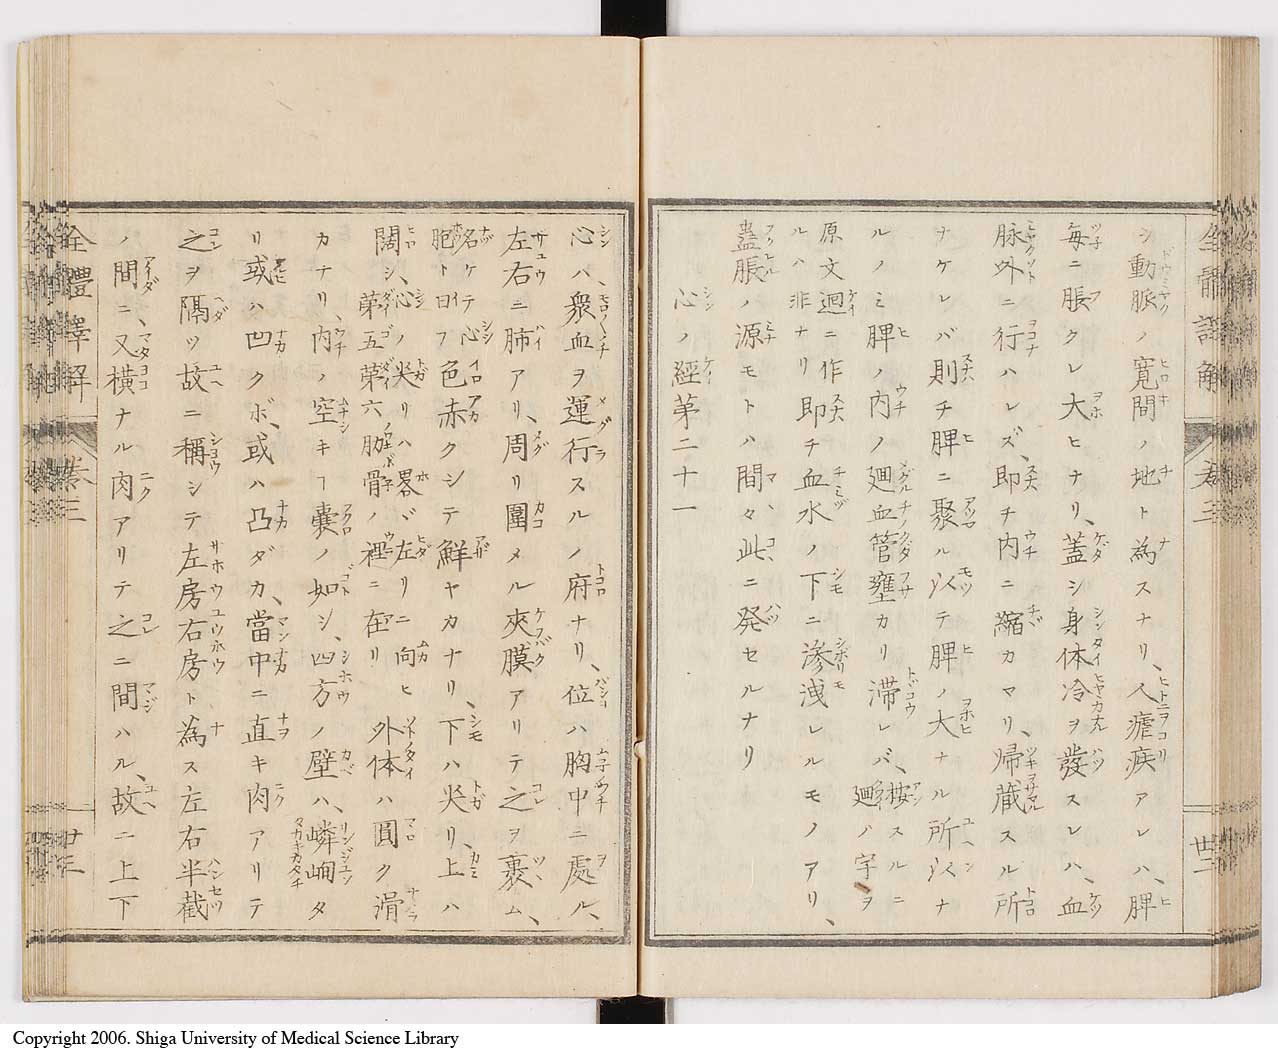 シ動脈ノ寛間ノ地ト為スナリ、人瘧疾アレハ、脾
毎ニ脹クレ大ヒナリ、蓋シ身体冷ヲ發スレハ、血
脉外ニ行ハレズ、即チ内ニ縮カマリ、帰蔵スル所
ナケレバ則チ脾ニ聚ル以テ脾ノ大ナル所以ナ
ルノミ脾ノ内ノ廻血管壅カリ滞レバ、按スルニ廻ハ字ヲ
原文迴ニ作ルハ非ナリ即チ血水ノ下ニ滲洩レルモノアリ、
蠱脹ノ源モトハ間々此ニ発セルナリ
心ノ經苐二十一
心ハ、衆血ヲ運行スルノ府ナリ、位ハ胸中ニ處ル、
左右ニ肺アリ、周リ圍メル夾膜アリテ之ヲ裹ム、
名ケテ心胞ト曰フ色赤クシテ鮮ヤカナリ、下ハ尖リ、上ハ
闊シ、心ノ尖リハ畧ボ左リニ向ヒ外体ハ圓ク滑
カナリ、内ノ空キヿ嚢ノ如シ、四方ノ壁ハ、嶙峋タ
リ或ハ凹クボ、或ハ凸ダカ、當中ニ直キ肉アリテ
之ヲ隔ツ故ニ稱シテ左房右房ト為ス左右半截
ノ間ニ、又横ナル肉アリテ之ニ間ハル、故ニ上下
全體譯解
巻三
廿三
Copyright 2006. Shiga University of Medical Science Library